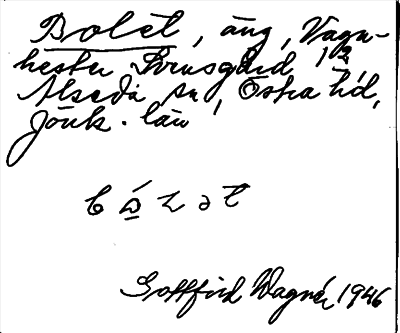 Bolet, äng, Vagn-
hester Svensgård 1/2
Alseda sn, Östra hd,
Jönk. län
Gottfrid Wagnér 1946